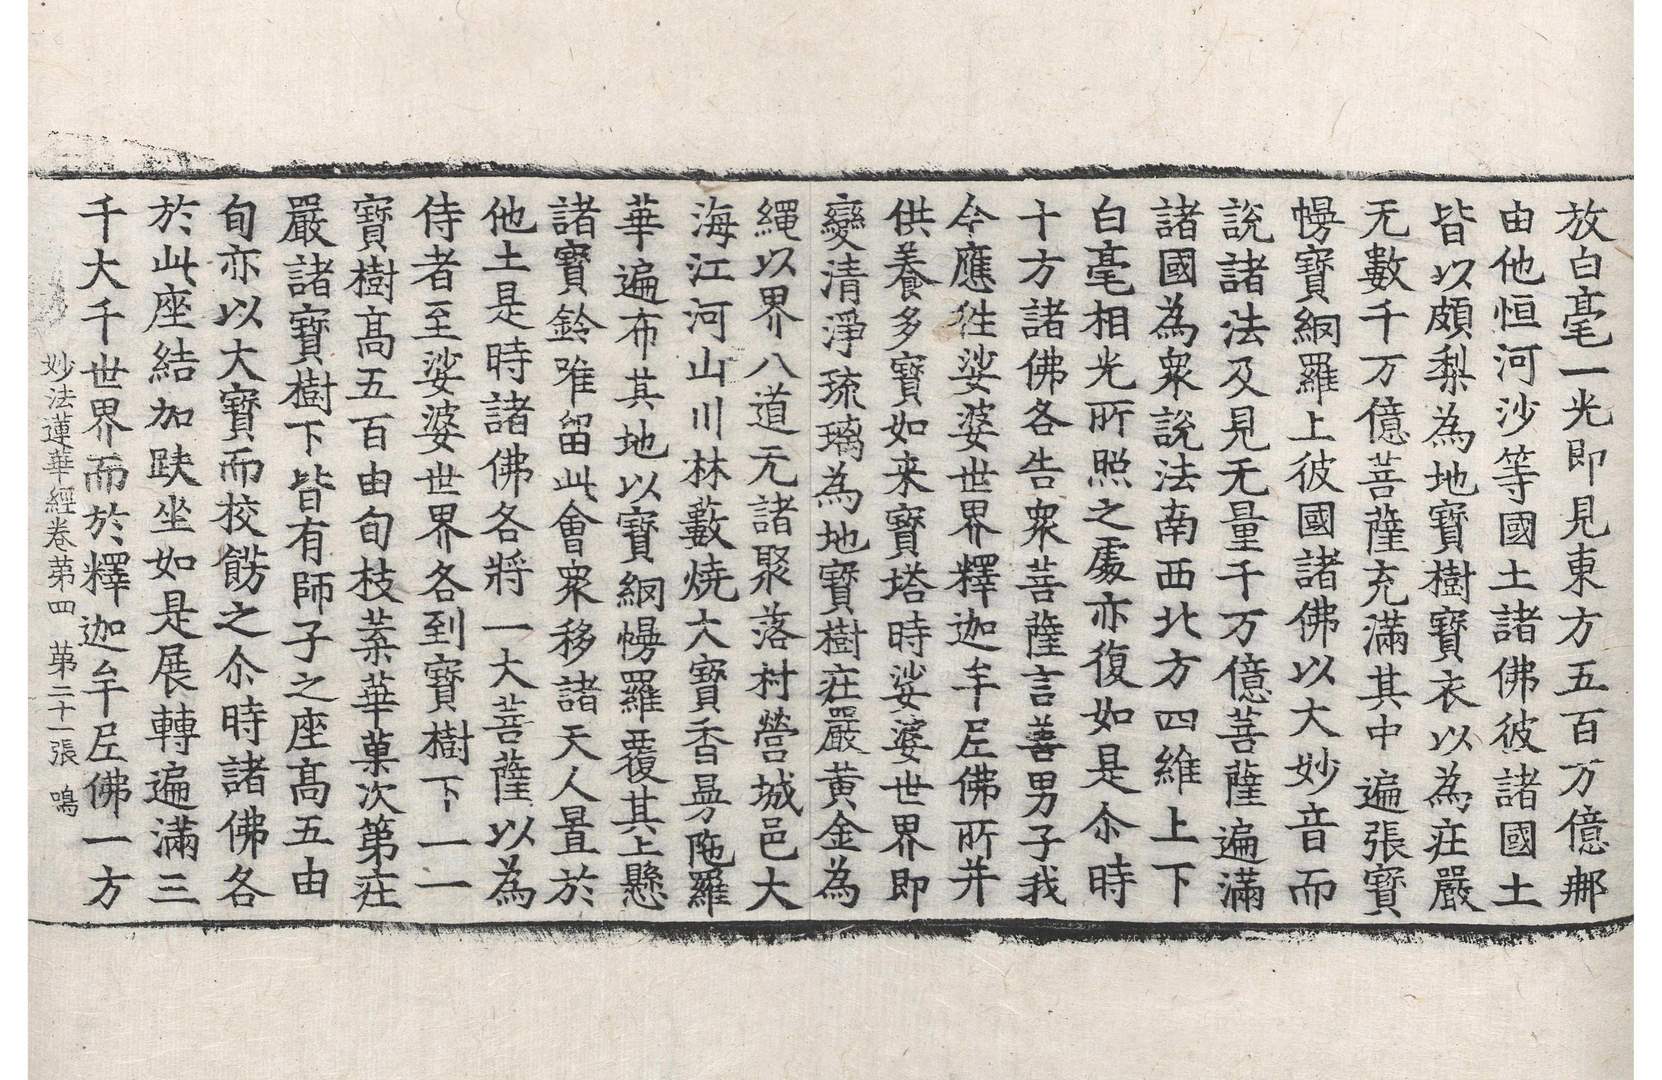 放白毫一光即見東方五百万億那
由他恒河沙等國土諸佛彼諸國土
皆以頗梨為地寶樹寶衣以為疘嚴
无數千万億菩薩充滿其中遍張寶
幔寶網羅上彼國諸佛以大妙音而
說諸法及見无量千万億菩薩遍滿
諸國為衆說法南西北方四維上下
白毫相光所照之處亦復如是尒時
十方諸佛各告衆菩薩言善男子我
今應往娑婆世界釋迦牟尼佛所并
供養多寶如来寶塔時娑婆世界即
變清淨琉璃為地寶樹疘嚴黃金為
繩以界八道无諸聚落村營城邑大
海江河山川林藪燒大寶香曼陁羅
華遍布其地以寶網幔羅覆其上懸
諸寶鈴唯留此會衆移諸天人置於
他土是時諸佛各將一大菩薩以為
侍者至娑婆世界各到寶樹下一一
寶樹髙五百由旬枝葉華菓次第疘
嚴諸寶樹下皆有師子之座髙五由
旬亦以大寶而校餝之尒時諸佛各
於此座結加趺坐如是展轉遍滿三
千大千世界而於釋迦牟尼佛一方
妙法蓮華經卷苐四 苐二十一張 鳴